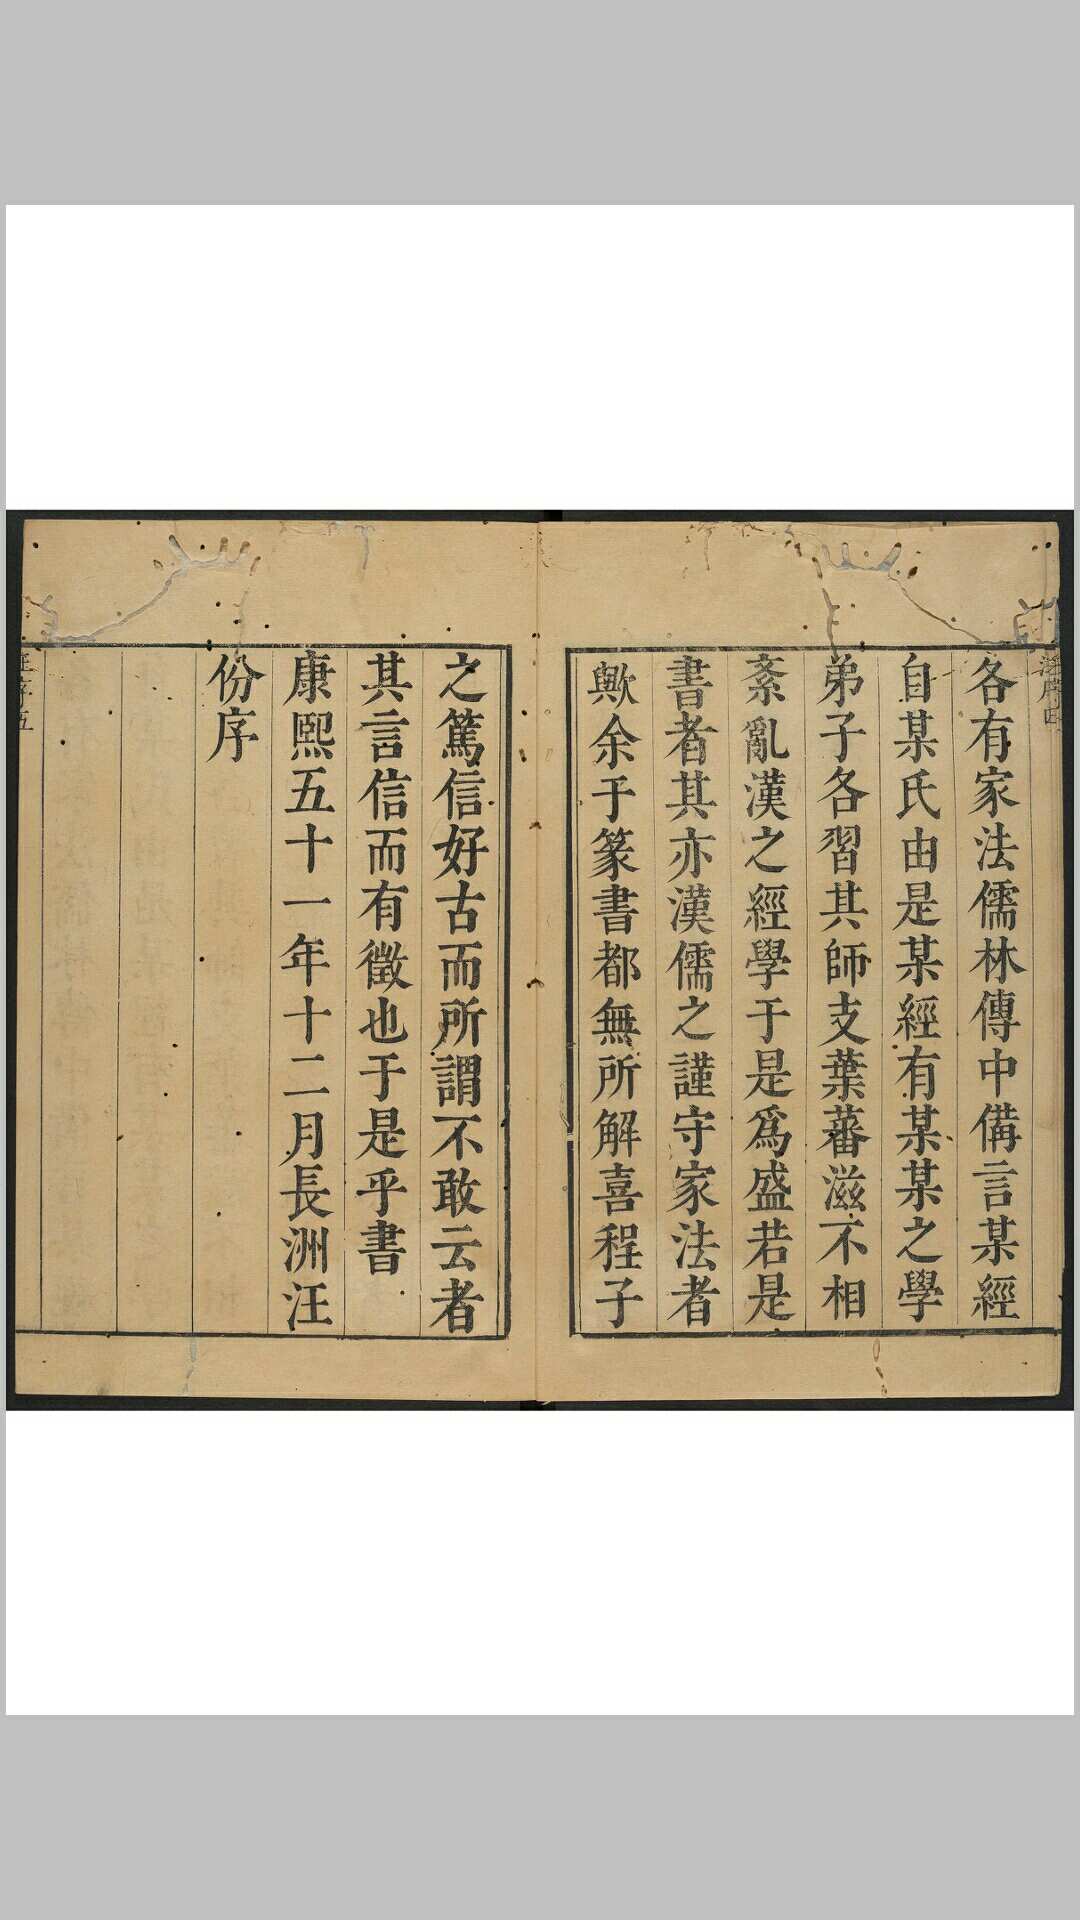 各有家法儒林傳中備言某經
自某氏由是某經有某某之學
弟子各習其師支葉蕃滋不相
紊亂漢之經學于是爲盛若是
書者其亦漢儒之謹守家法者
歟余于篆書都無所解喜程子
之篤信好古而所謂不敢云者
其言信而有徵也于是乎書
康熙五十一年十二月長洲汪
份序